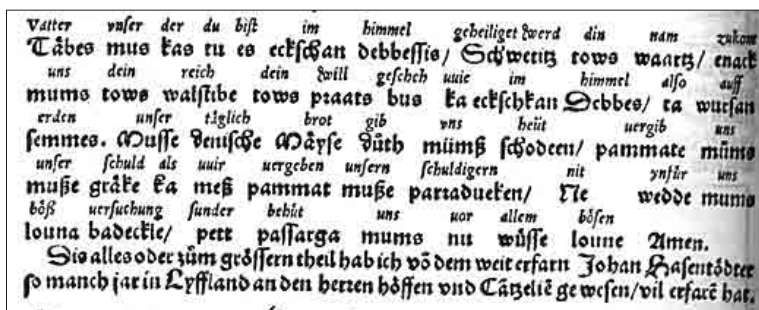 Vatter vnser der du bist im himmel geheiliget werd din nam zukom
Tåbes mus kas tu es eckschan debbessis/ Schwetitz tows waartz/ enack
uns dein reich dein will gescheh uuie im himmel also auff
mums tows walstibe tows praats bus ka eckschkan Debbes/ ta wursan
erden unser tåglich brot gib vns heüt uergib uns
semmes. Musse denische Måyse důth mümß schodeen/ pammate müms
unser schuld als uuir uergeben unsern schuldigern nit ynfür uns
muße gråke ka meß pammat muße parradueken/ Ne wedde mums
böß uersuchung sunder behüt uns uor allem bösen
louna badeckle/ pett passarga mums nu wüsse loune Amen.
Dis alles oder zům grössern theil hab ich võ dem weit erfarn Johan Hasentödter
so manch jar in Lyffland an den herren höffen vnd Cåtzeliẽ gewesen/ vil erfarẽ hat.